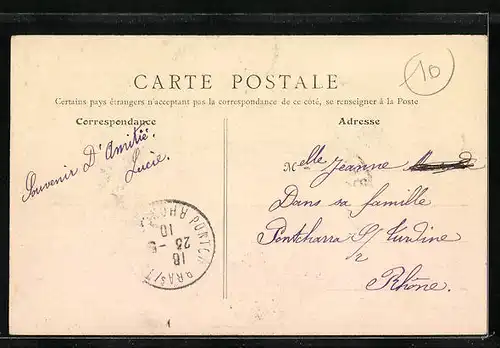 10
CARTE POSTALE
Certains pays étrangers n'acceptant pas la correspondance de ce côté, se renseigner à la Poste
Correspondance
Adresse
Souvenir D'Amitié.
Lucie.
Melle Jeanne
Dans sa famille
Pontcharra S/ Turdine
Rhône.
18
23 - 5
10
RHONE